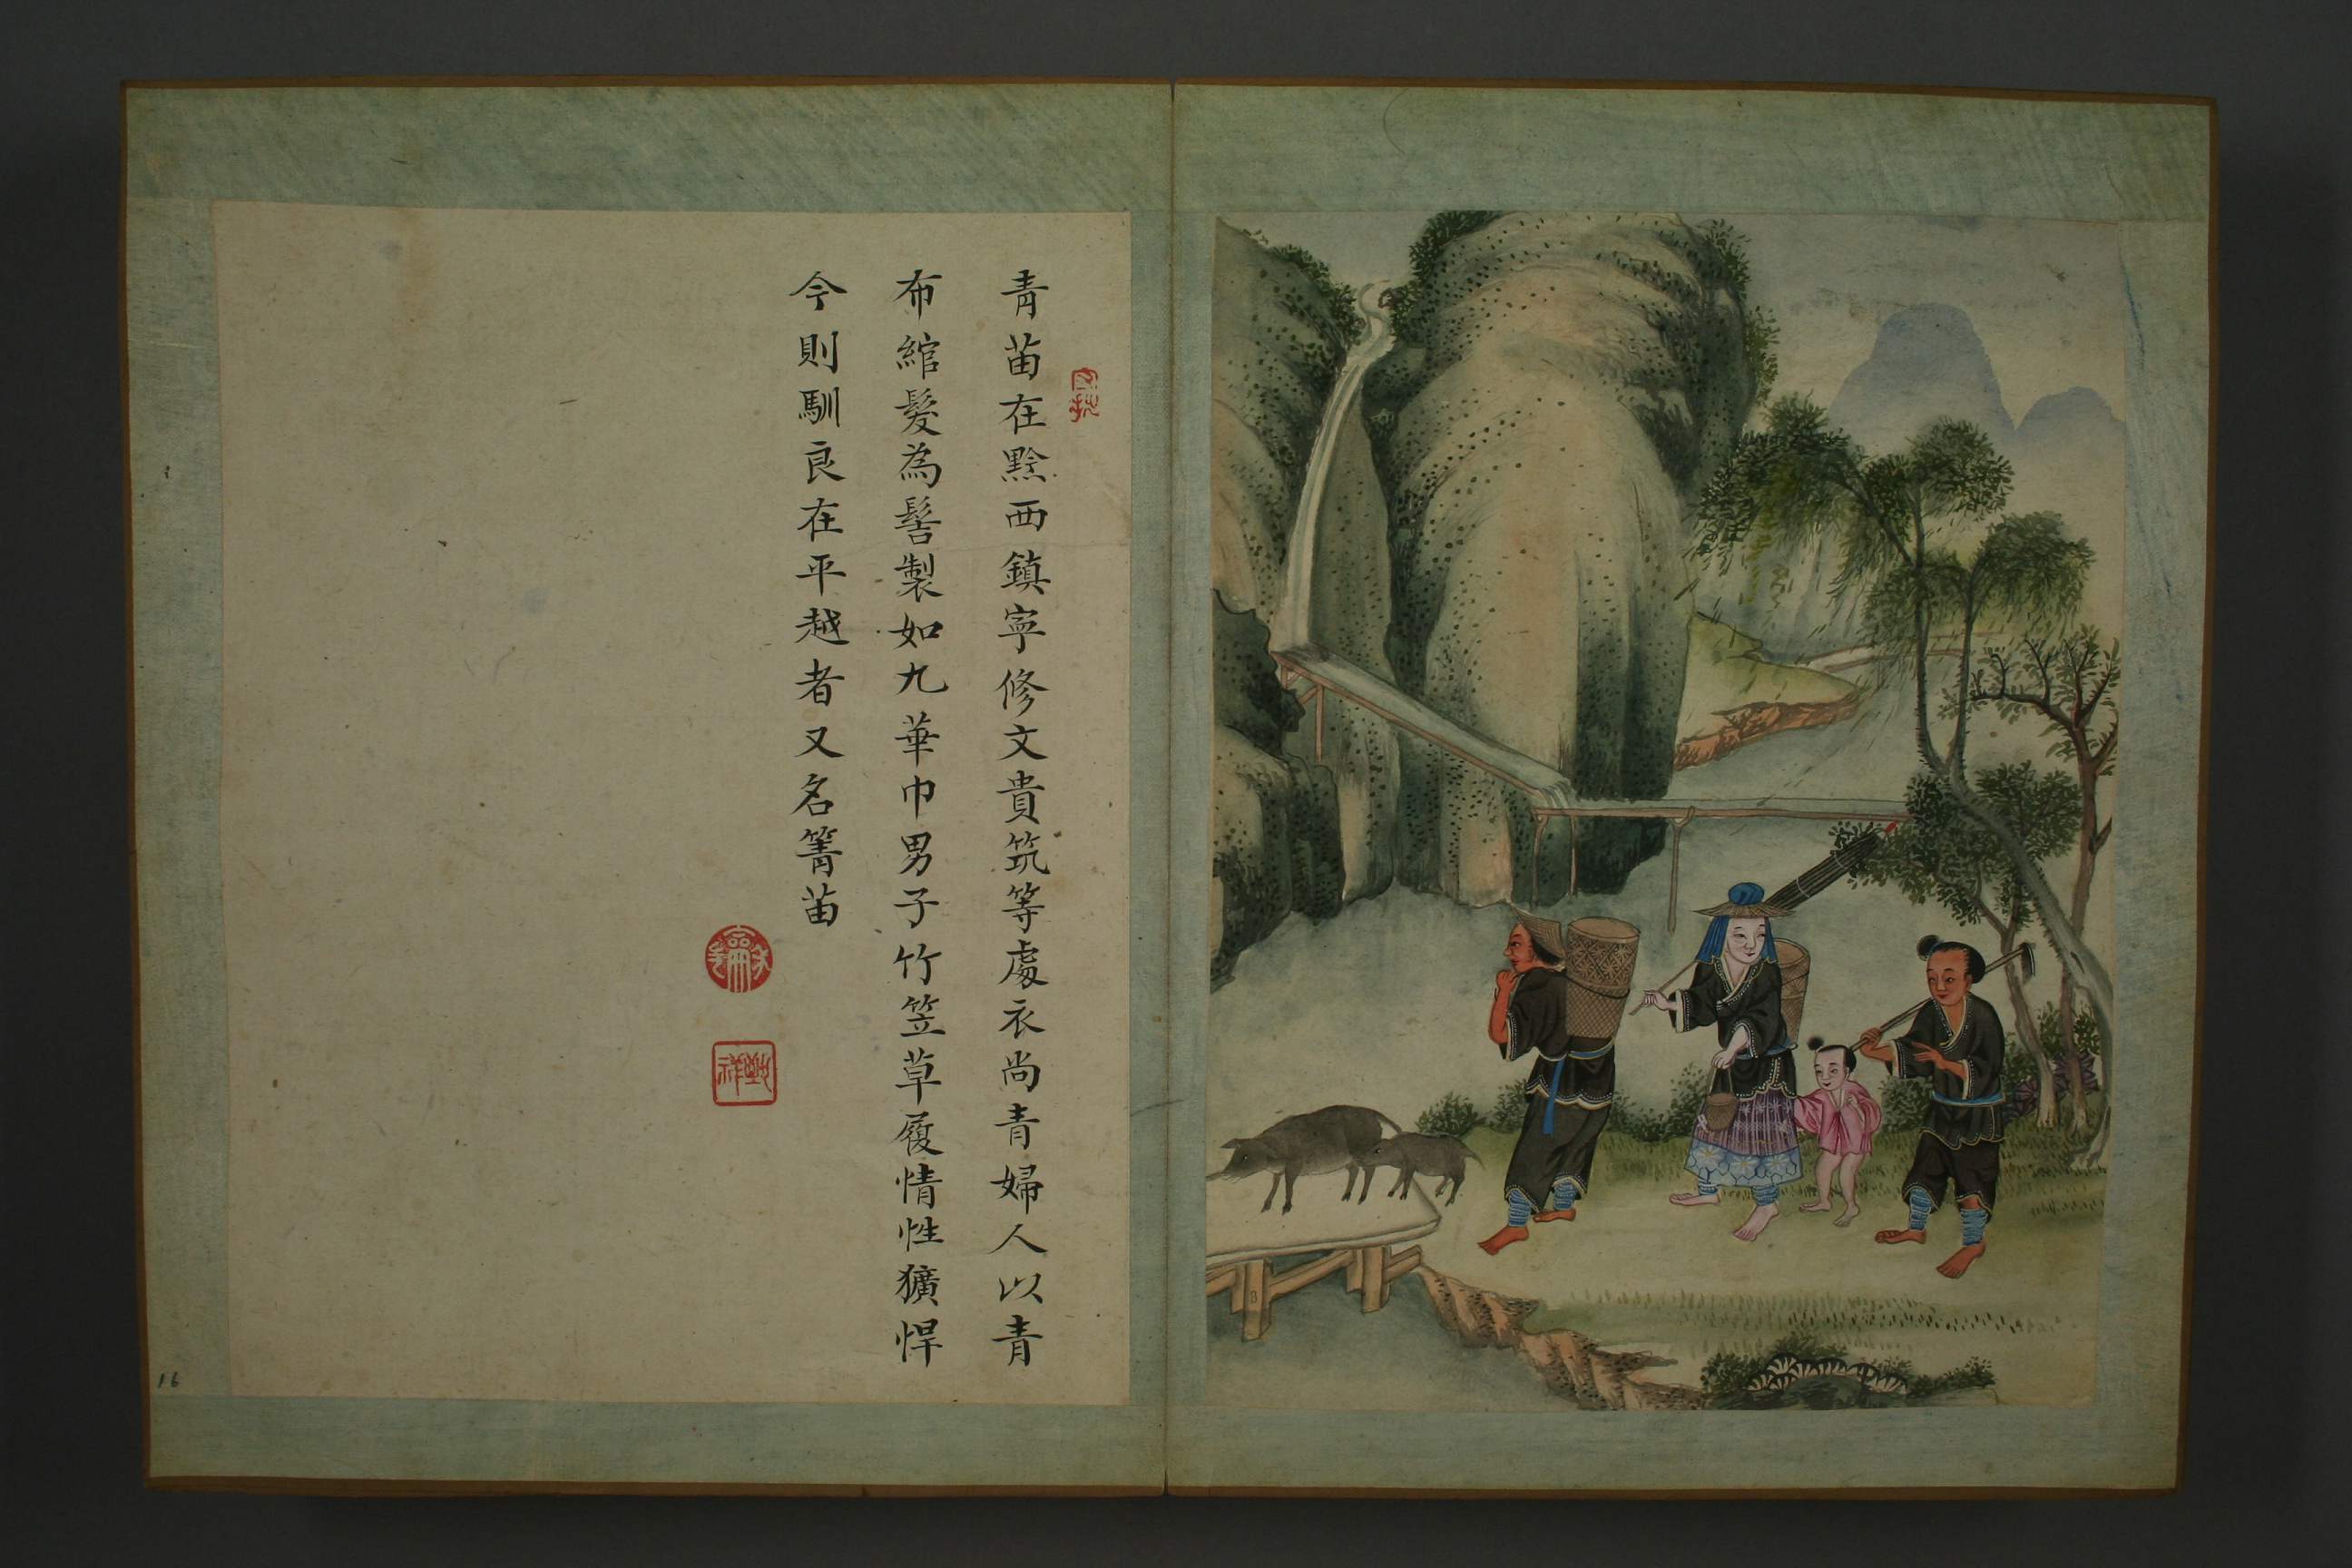 青苗在黔西鎮寧修文貴筑等處衣尚青婦人以青
布綰髮為髻製如九華巾男子竹笠草履情性獷悍
今則馴良在平越者又名箐苗
16